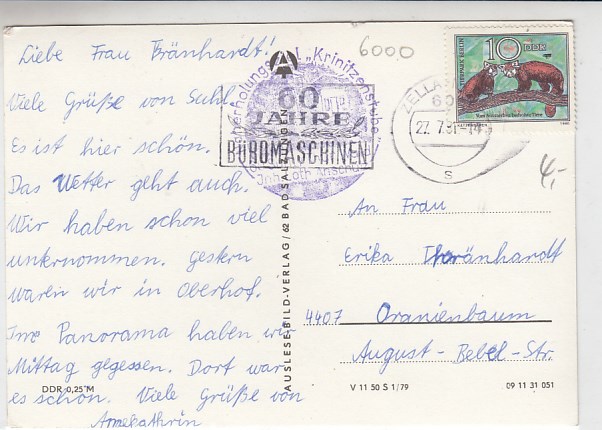 Liebe Frau Bränhardt!
Viele Grüße von Suhl.
Es ist hier schön.
Das Wetter geht auch.
Wir haben schon viel
unternommen. gestern
waren wir in Oberhof.
Imo Panorama haben wir
Mittag gegessen. Dort war
es schön. Viele Grüße von
Annekathrin
DDR 0,25 M
AUSLESE-BILD-VERLAG/62 BAD SALZUNGEN
"Krinitzenstube"
60
JAHRE
BÜROMASCHINEN
6000
ZELLA
60
27.7.81-14
s
TIERPARK BERLIN
10 DDR
4,-
An Frau
Erika Bränhardt
4407 Oranienbaum
August-Bebel-Str.
V 11 50 S 1/79
09 11 31 051